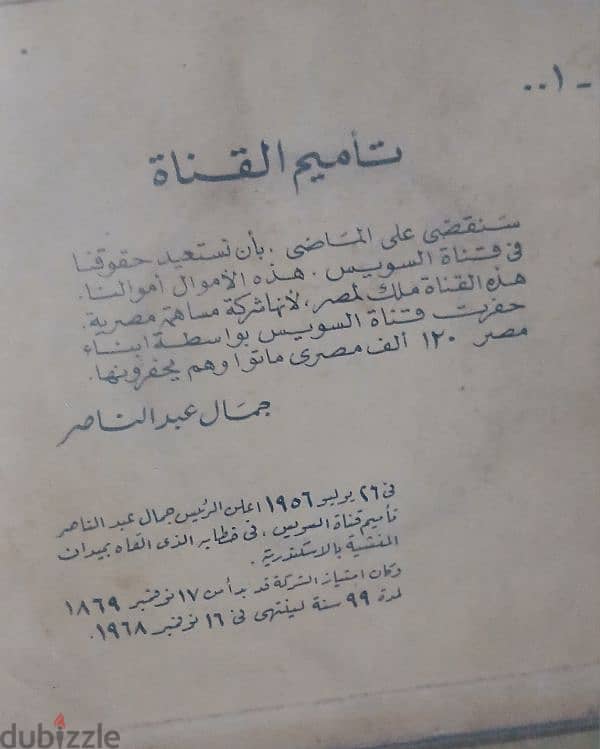 - ١٠٠
تأميم القناة
سنقضى على الماضى . بأن نستعيد حقوقنا
فى قناة السويس . هذه الأموال أموالنا .
هذه القناة ملك لمصر، لأنها شركة مساهمة مصرية .
حفرت قناة السويس بواسطة ابناء
مصر ١٢٠ ألف مصرى ماتوا وهم يحفرونها .
جمال عبد الناصر
فى ٢٦ يوليو ١٩٥٦ اعلن الرئيس جمال عبد الناصر
تأميم قناة السويس ، فى خطابه الذى القاه بميدان
المنشية بالاسكندرية .
وكان امتياز الشركة قد بدأ من ١٧ نوفمبر ١٨٦٩
لمدة ٩٩ سنة لينتهى فى ١٦ نوفمبر ١٩٦٨ .
dubizzle